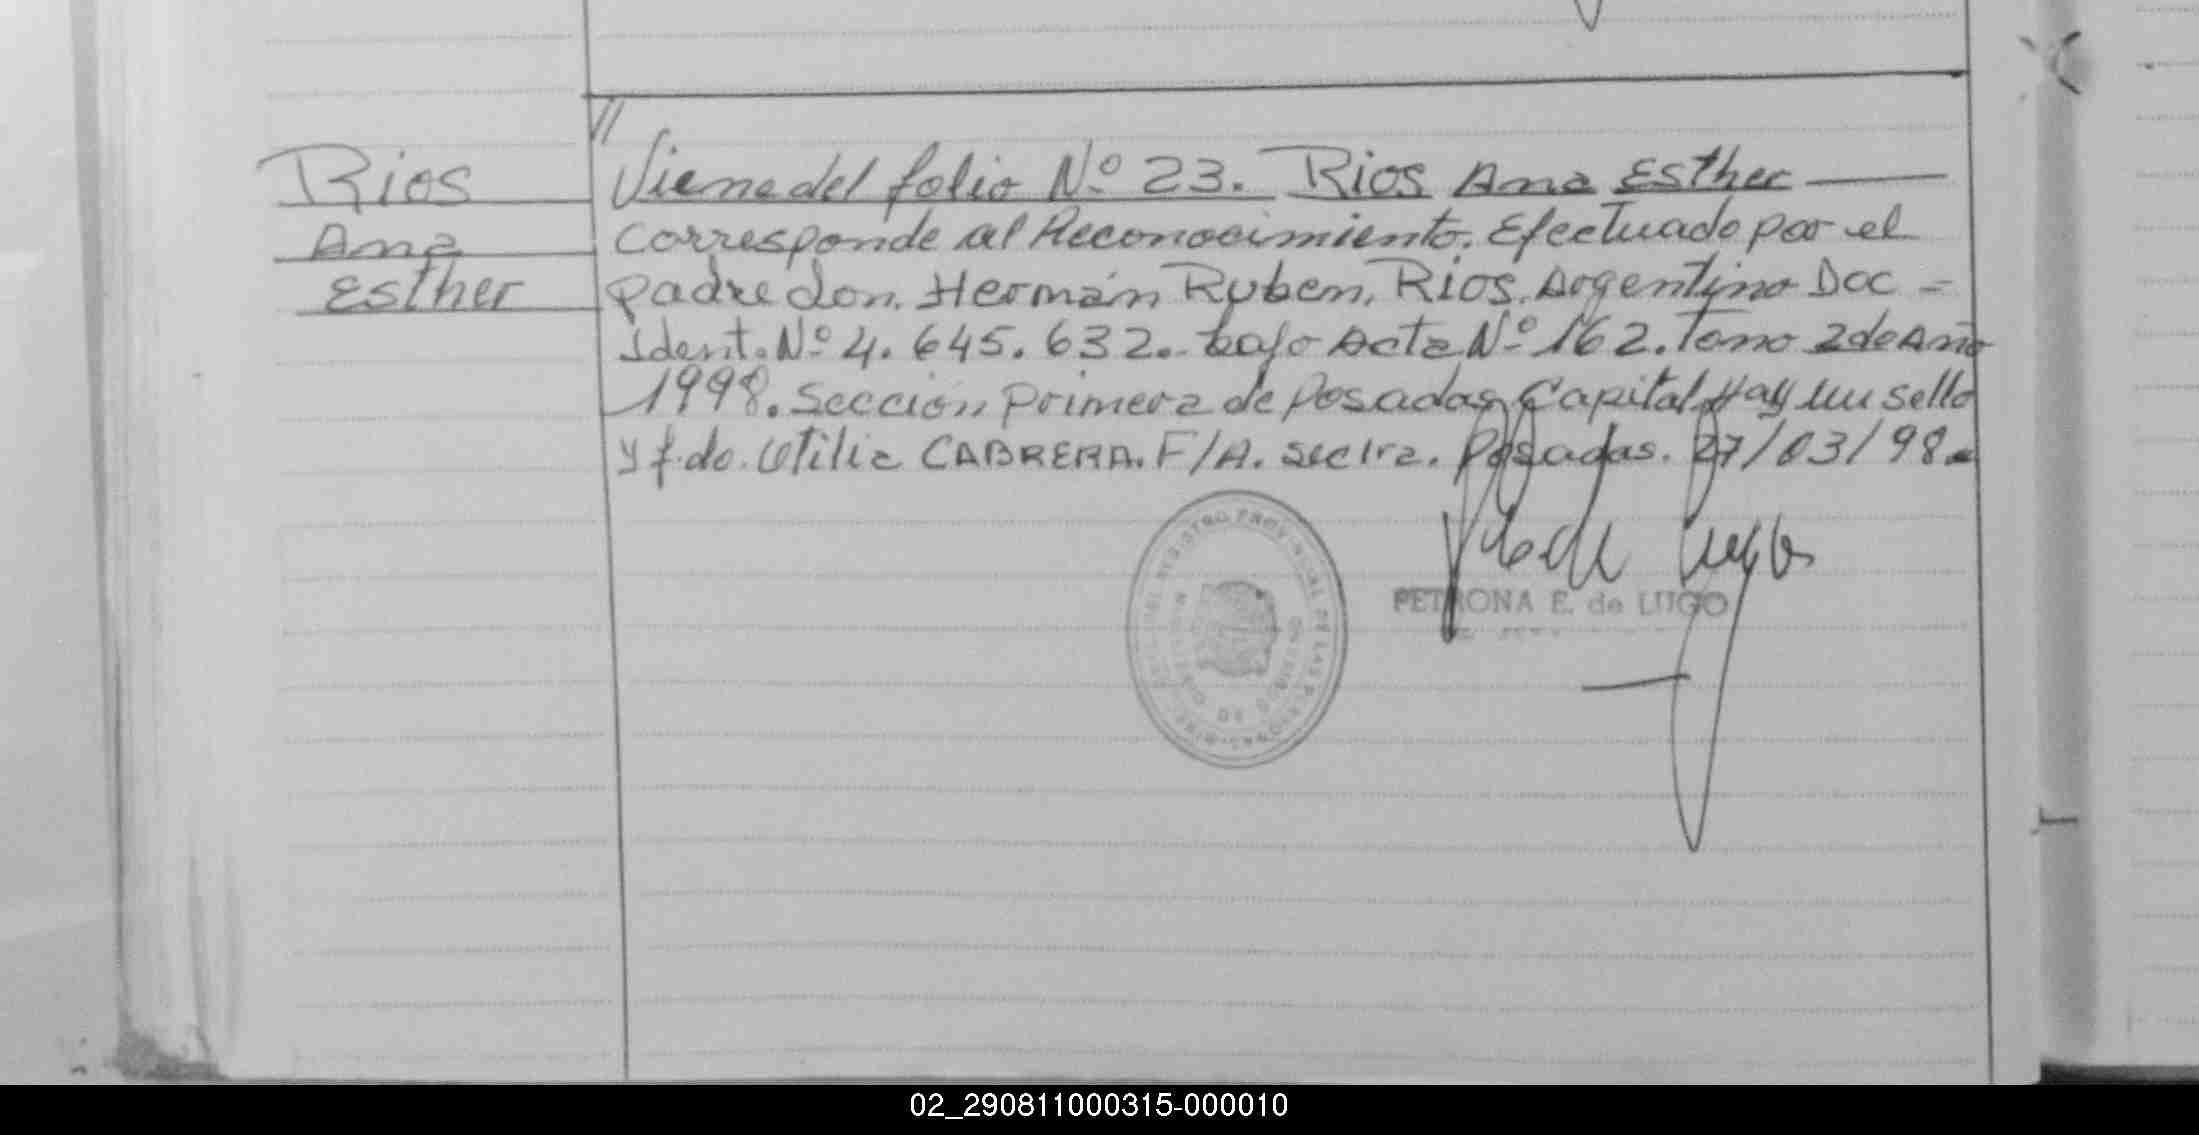 Rios
Ana
Esther
// Viene del folio Nº 23. Rios Ana Esther
Corresponde al Reconocimiento. Efectuado por el
padre don. Hermán Ruben, Rios. Argentino Doc =
Ident. Nº 4. 645. 632.- bajo Acta Nº 162. Tomo 2 de Año
1998. Sección Primera de Posadas Capital Hay un sello
y f.do. Otilia CABRERA. F/A. Sec 1ra. Posadas. 27/03/98.-
REGISTRO PROVINCIAL DE LAS PERSONAS
PETRONA E. de LUGO
02_290811000315-000010